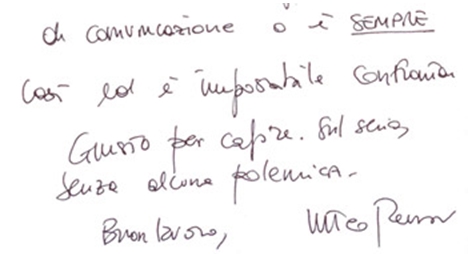 di comunicazione o è SEMPRE
così ed è impossibile
Giusto per capire. Sul serio,
senza alcuna polemica.
Buon lavoro,